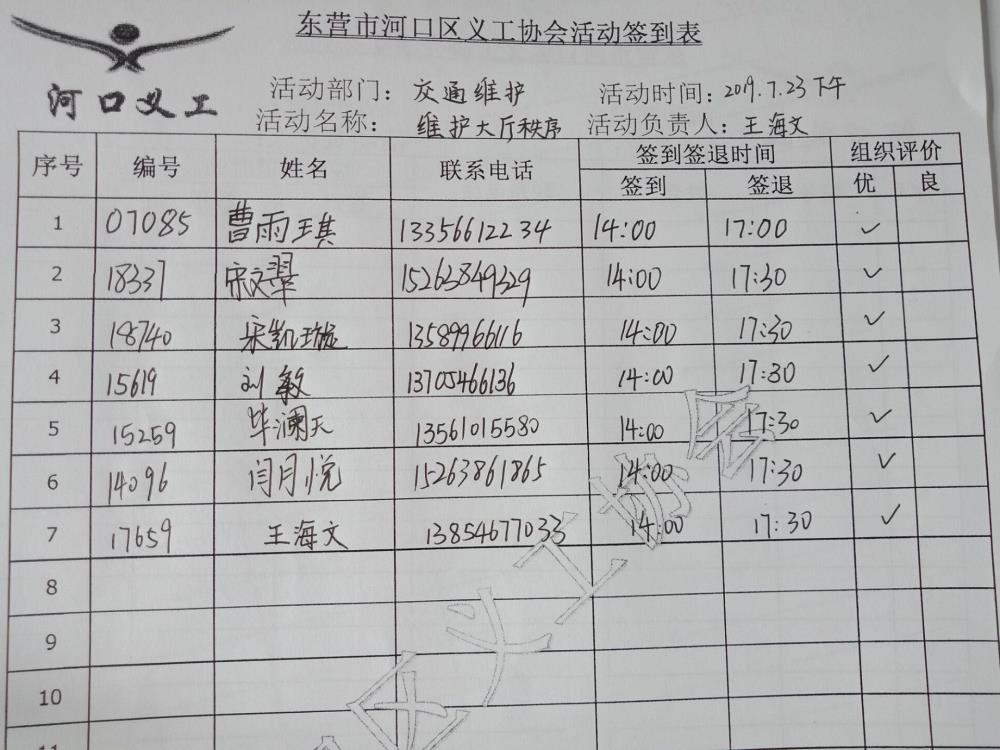 东营市河口区义工协会活动签到表
河口义工
活动部门：交通维护 活动时间：2019.7.23下午
活动名称：维护大厅秩序 活动负责人：王海文
序号 编号 姓名 联系电话 签到签退时间 组织评价
签到 签退 优 良
1 07085 曹雨琪 13356612234 14:00 17:00 ✓
2 18337 宋文翠 15263849329 14:00 17:30 ✓
3 18740 宋凯璇 13589966116 14:00 17:30 ✓
4 15619 刘敏 13705466136 14:00 17:30 ✓
5 15259 毕澜天 13561015580 14:00 17:30 ✓
6 14096 闫月悦 15263861865 14:00 17:30 ✓
7 17659 王海文 13854677033 14:00 17:30 ✓
8
9
10
11